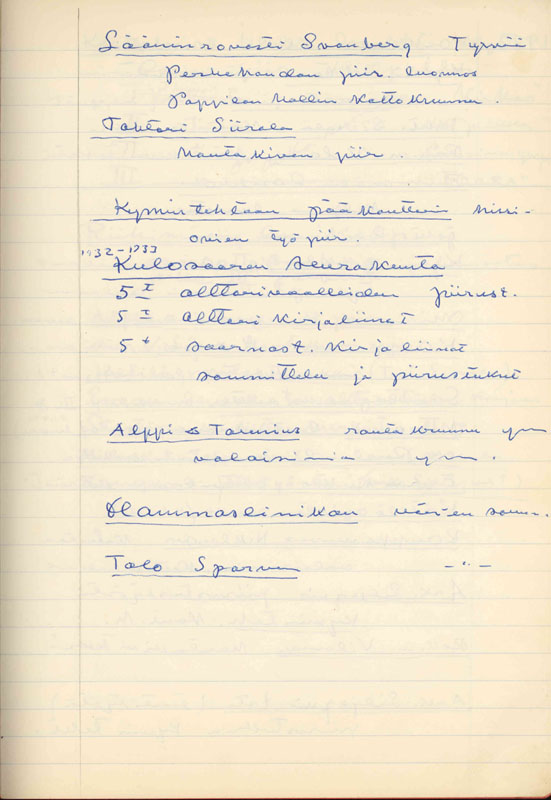 Lääninrovasti Svanberg Tyrvää
Perhehaudan piir. luonnos
Pappilan hallin kattokruunu.
Tohtori Siirala
hautakiven piir.
Kymintehtaan pääkonttorin
ovien työpiir.
1932-1933
Kulosaaren seurakunta
5 I alttarivaatteiden piirust.
5 I alttari kirjaliinat
5 + saarnast. kirjaliinat
sommittelu ja piirustukset
Alppi & Tornius rautakruunu ym
valaisimia ym.
Hammasklinikan värien somm.
Talo Sparven -"-